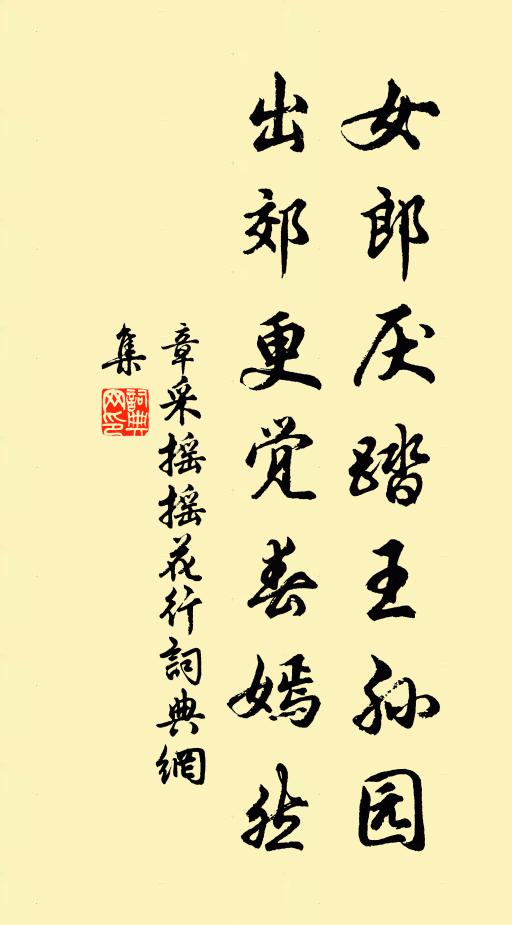 女郎厌踏王孙园
出郊更觉春嫣然
章采摇摇花行詞典網
集
詞典
网印